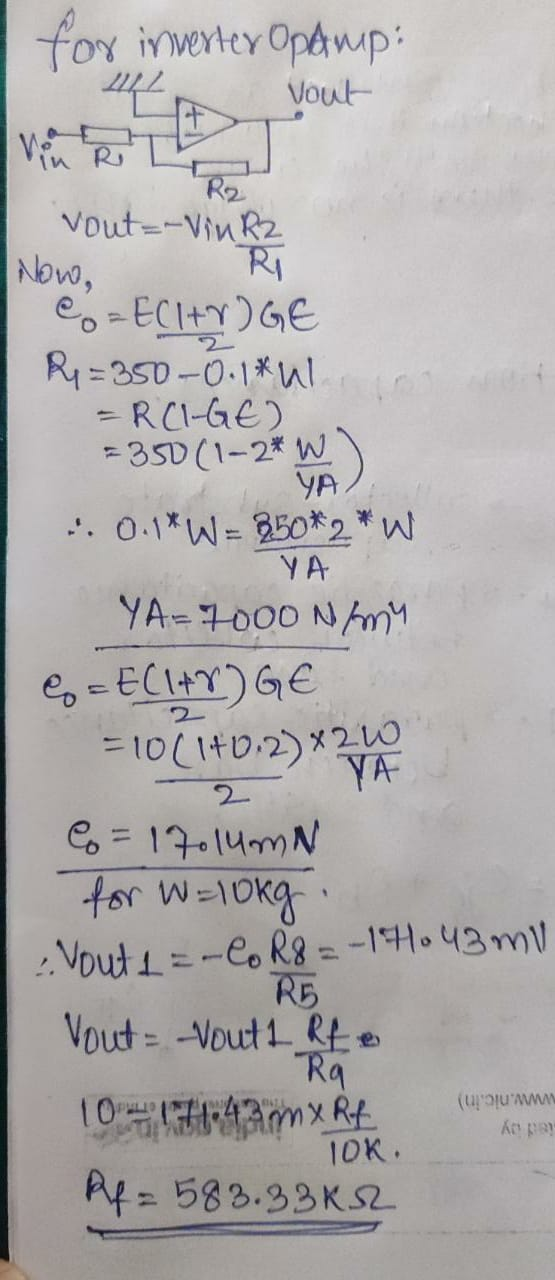 for inverter OpAmp:
Vout
+
-
Vin R1
R2
Vout=-Vin R2/R1
Now,
e₀=E(1+r)/2 GЄ
R1=350-0.1*W
=R(1-GЄ)
=350(1-2* W/YA)
∴ 0.1*W= 350*2/YA *W
YA=7000 N/m4
e₀=E(1+r)/2 GЄ
=10(1+0.2)/2 × 2W/YA
e₀=17.14mN
for W=10kg.
∴ Vout1=-e₀ R8/R5=-171.43mV
Vout= -Vout1 Rf/R9
www.nic.in)
ted by
india.gov.in
10=171.43m×Rf/10K.
Rf=583.33KΩ